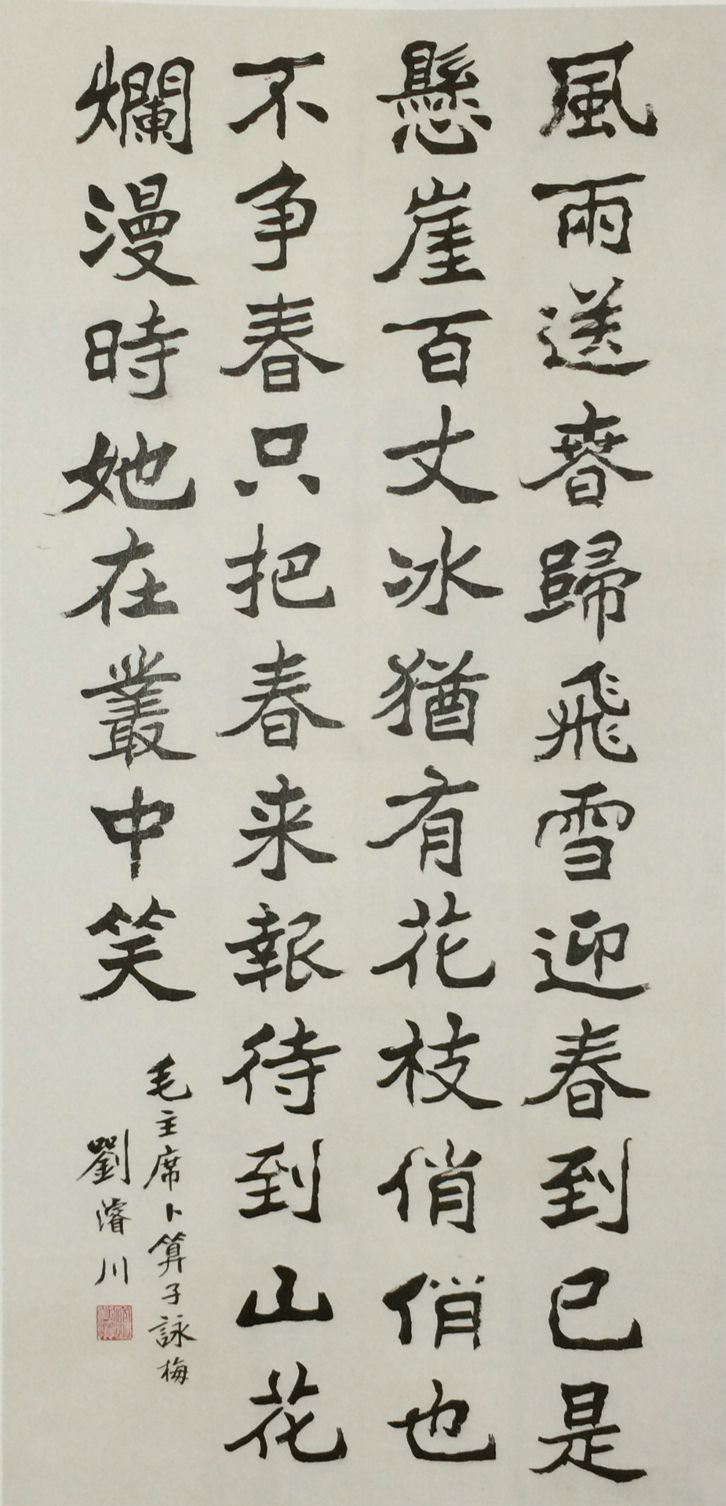 風雨送春歸飛雪迎春到已是
懸崖百丈冰猶有花枝俏俏也
不争春只把春来報待到山花
爛漫時她在叢中笑
毛主席卜算子詠梅
劉濬川